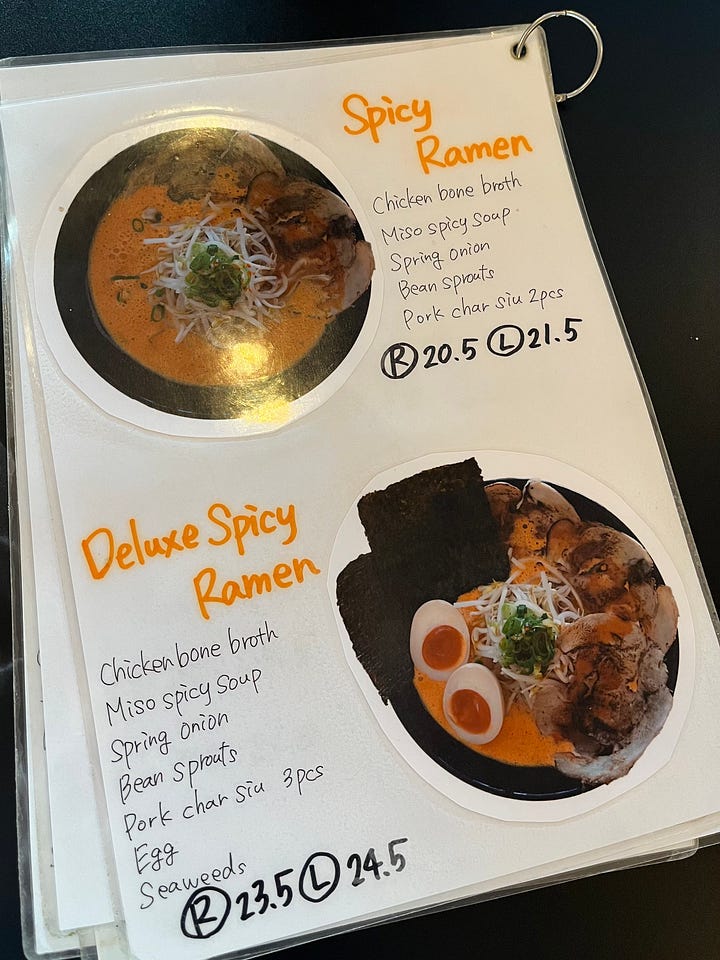 Spicy
Ramen
Chicken bone broth
Miso spicy soup
Spring onion
Bean sprouts
Pork char siu 2pcs
R 20.5 L 21.5
Deluxe Spicy
Ramen
Chicken bone broth
Miso spicy soup
Spring onion
Bean sprouts
Pork char siu 3pcs
Egg
Seaweeds
R 23.5 L 24.5